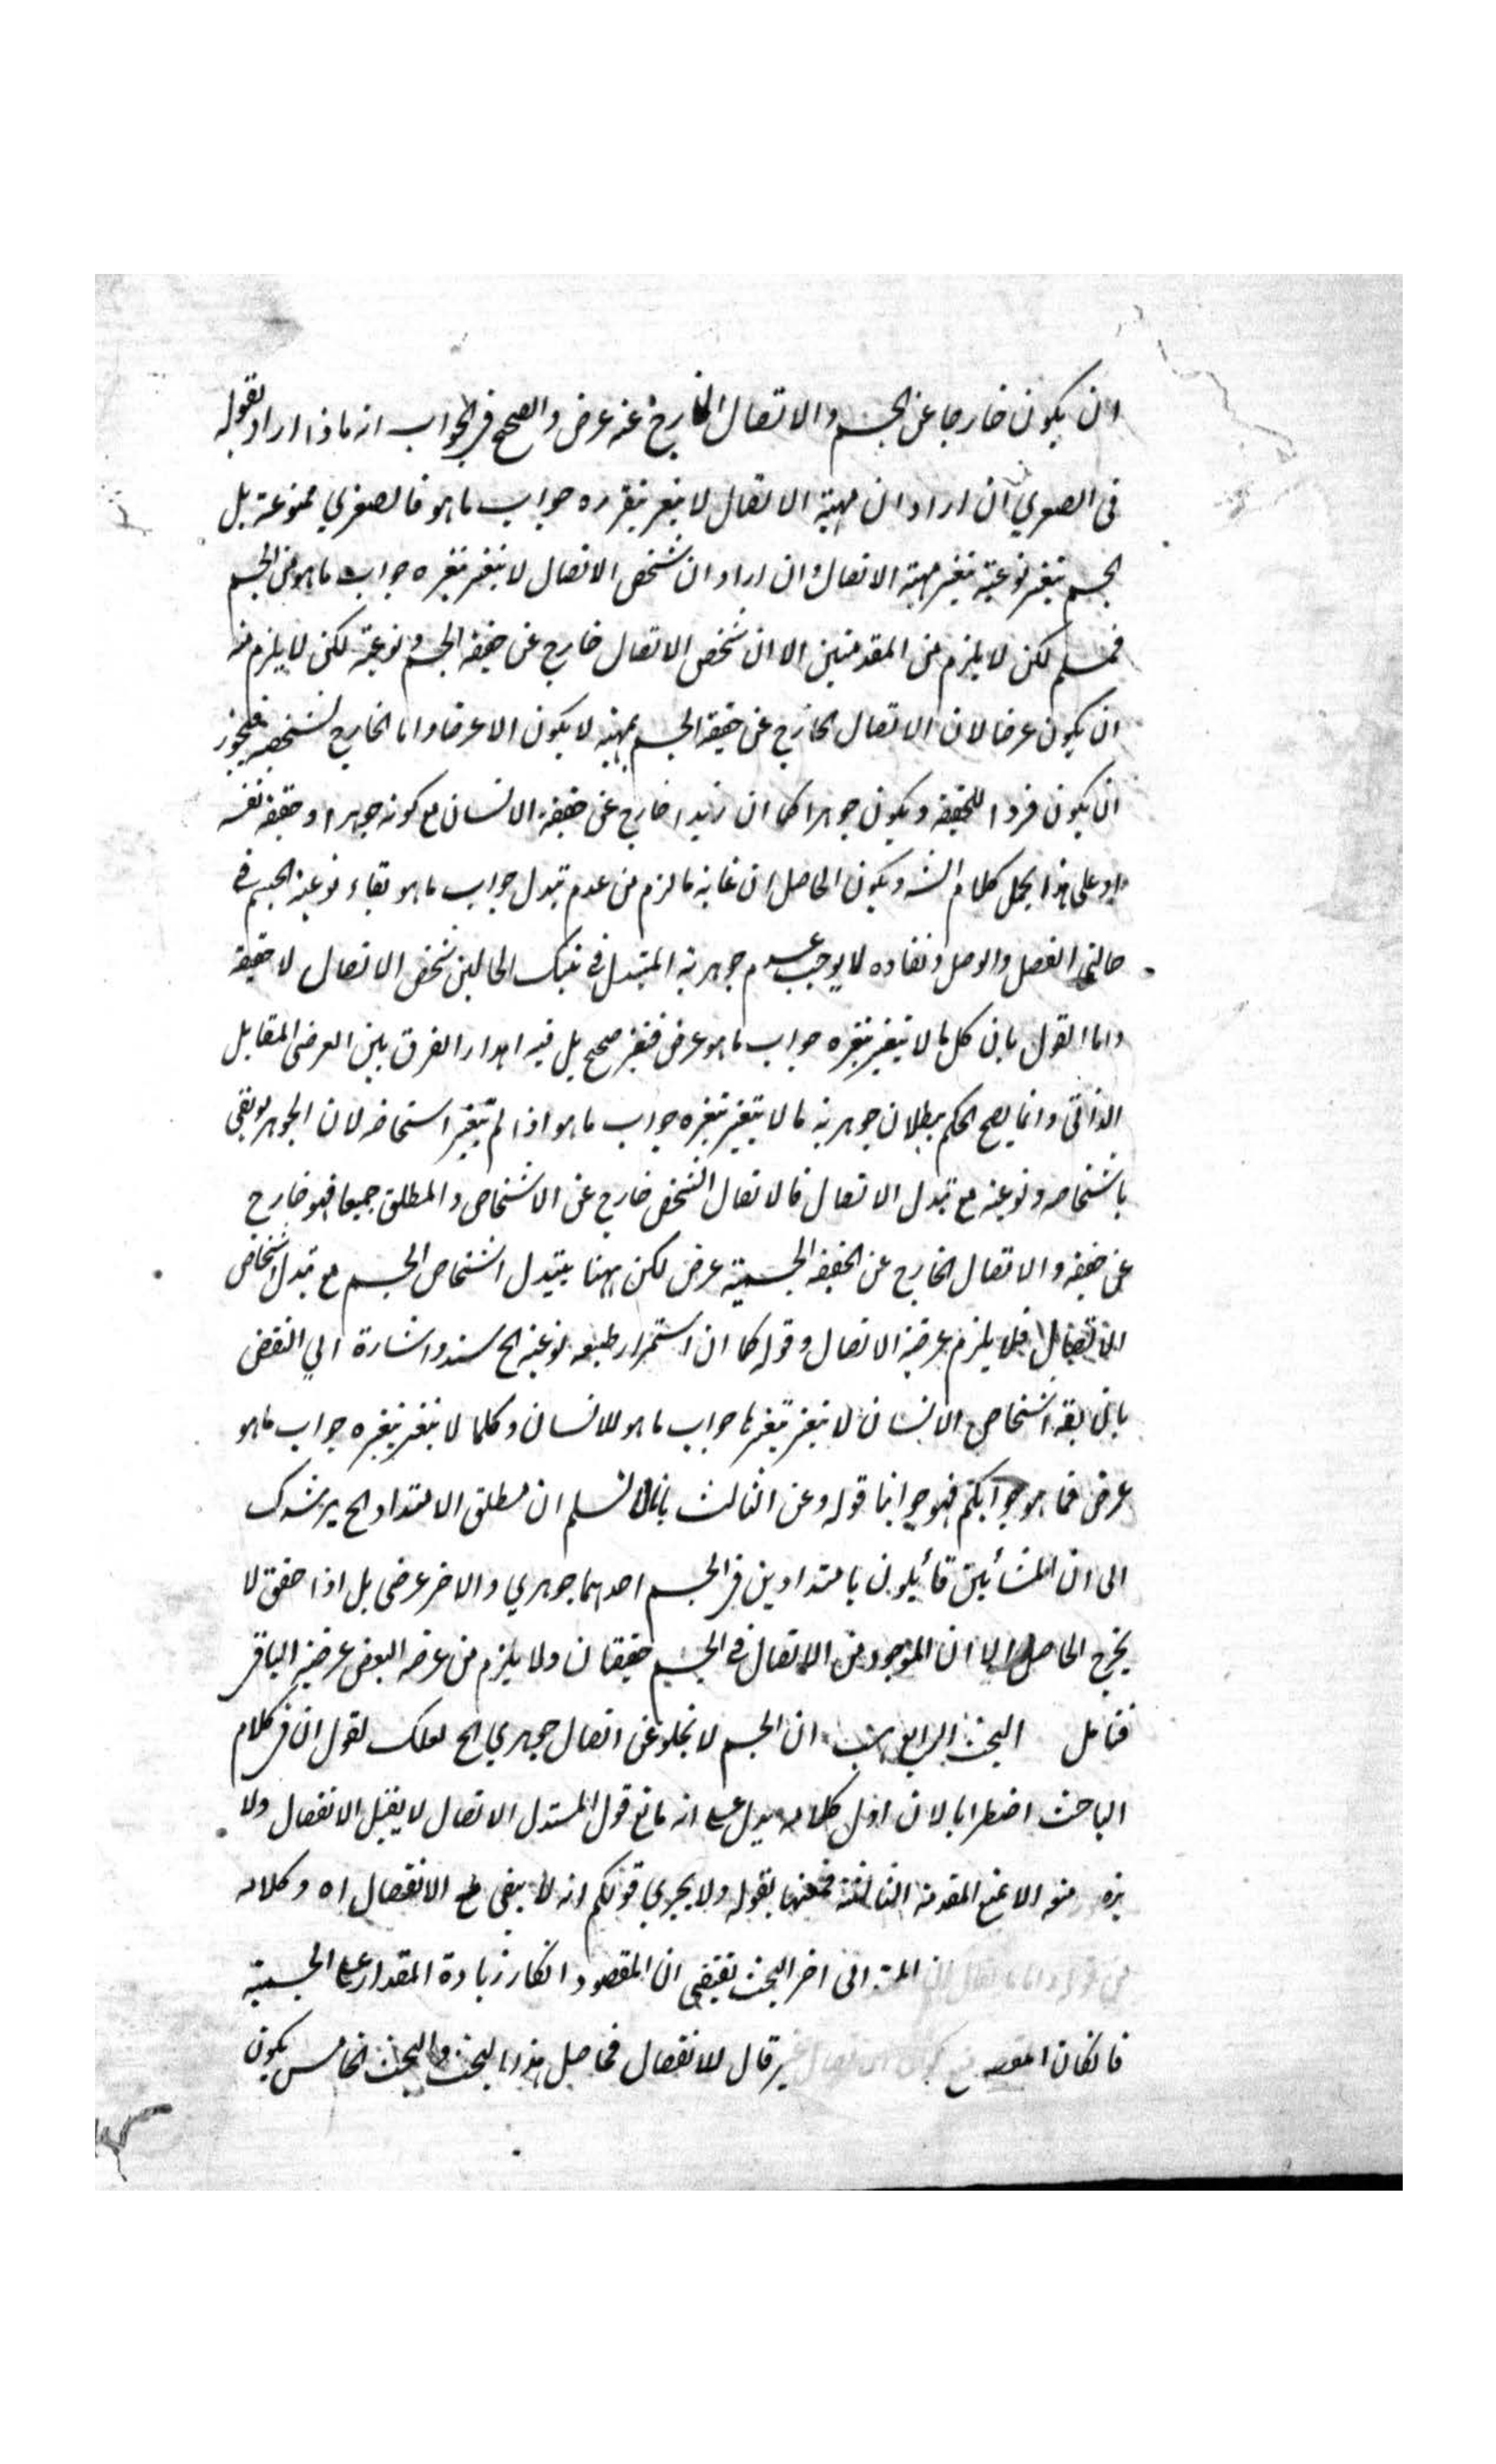 ان يكون خارجا عن الجسم والاتصال الخارج عنه عرض والصحيح في الجواب انه ماذا اراد بقوله
في الصغري ان اراد ان مهية الاتصال لا يتغير بتغيره جواب ما هو فالصغري ممنوعة بل
الجسم يتغير نوعية بتغير مهية الاتصال وان اراد ان شخص الاتصال لا يتغير بتغيره جواب ما هو من الجسم
فمسلم لكن لا يلزم من المقدمتين الا ان شخص الاتصال خارج عن حقيقة الجسم ونوعية لكن لا يلزم منه
ان يكون عرضا لان الاتصال الخارج عن حقيقة الجسم بمهية لا يكون الا عرضا واما الخارج بشخصه فيجوز
ان يكون فردا للحقيقة ويكون جوهرا كما ان زيدا خارج عن حقيقة الانسان مع كونه جوهرا وحقيقة نفسه
وعلى هذا يحمل كلام الش ويكون الحاصل ان غاية ما لزم من عدم تبدل جواب ما هو بقاء نوعية الجسم في
حالتي الفصل والوصل ونفاده لا يوجب عدم جوهرية المتبدل في تينك الحالين شخص الاتصال لا حقيقة
واما القول بان كل ما لا يتغير بتغيره جواب ما هو عرض فغير صحيح بل فيه اهدار الفرق بين العرضى المقابل
الذاتى وانما يصح الحكم ببطلان جوهرية ما لا يتغير بتغيره جواب ما هو اذا لم يتغير اشخاصه لان الجوهر لو بقى
باشخاصه ونوعية مع تبدل الاتصال فالاتصال الشخص خارج عن الاشخاص والمطلق جميعا فهو خارج
عن حقيقة والاتصال الخارج عن الحقيقة الجسمية عرض لكن ههنا يتبدل اشخاص الجسم مع تبدل اشخاص
الاتصال فلا يلزم عرضية الاتصال وقوله كما ان استمرار طبيعه نوعية الخ سند واشارة الي النقض
بان بقه اشخاص الانسان لا يتغير بتغيرها جواب ما هو للانسان وكلما لا يتغير بتغيره جواب ما هو
عرض فما هو جوابكم فهو جوابنا قوله وعن الثالث بانا لا نسلم ان مطلق الامتداد الخ يرشدك
الى ان المشائين قائيلون بامتدادين في الجسم احدهما جوهري والاخر عرضى بل اذا حقق لا
يخرج الحاصل الا ان الموجود من الاتصال في الجسم حقيقتان ولا يلزم من عرضه البعض عرضية الباقي
فتامل البحث الرابع ان الجسم لا يخلو عن اتصال جوهري الخ لعلك تقول ان في كلام
الباحث اضطرابا لان اول كلامه يدل على انه مانع قول المستدل الاتصال لا يقبل الانفصال ولا
منه الا بمنع المقدمة الثالثة فمنعها بقوله ولا يجري قولكم انه لا يبقى مع الانفصال اه وكلامه
الى اخر البحث يقتضى ان المقصود انكار زيادة المقدار على الجسمية
فانكان المقص قال للانفصال فحاصل هذا البحث والبحث الخامس يكون